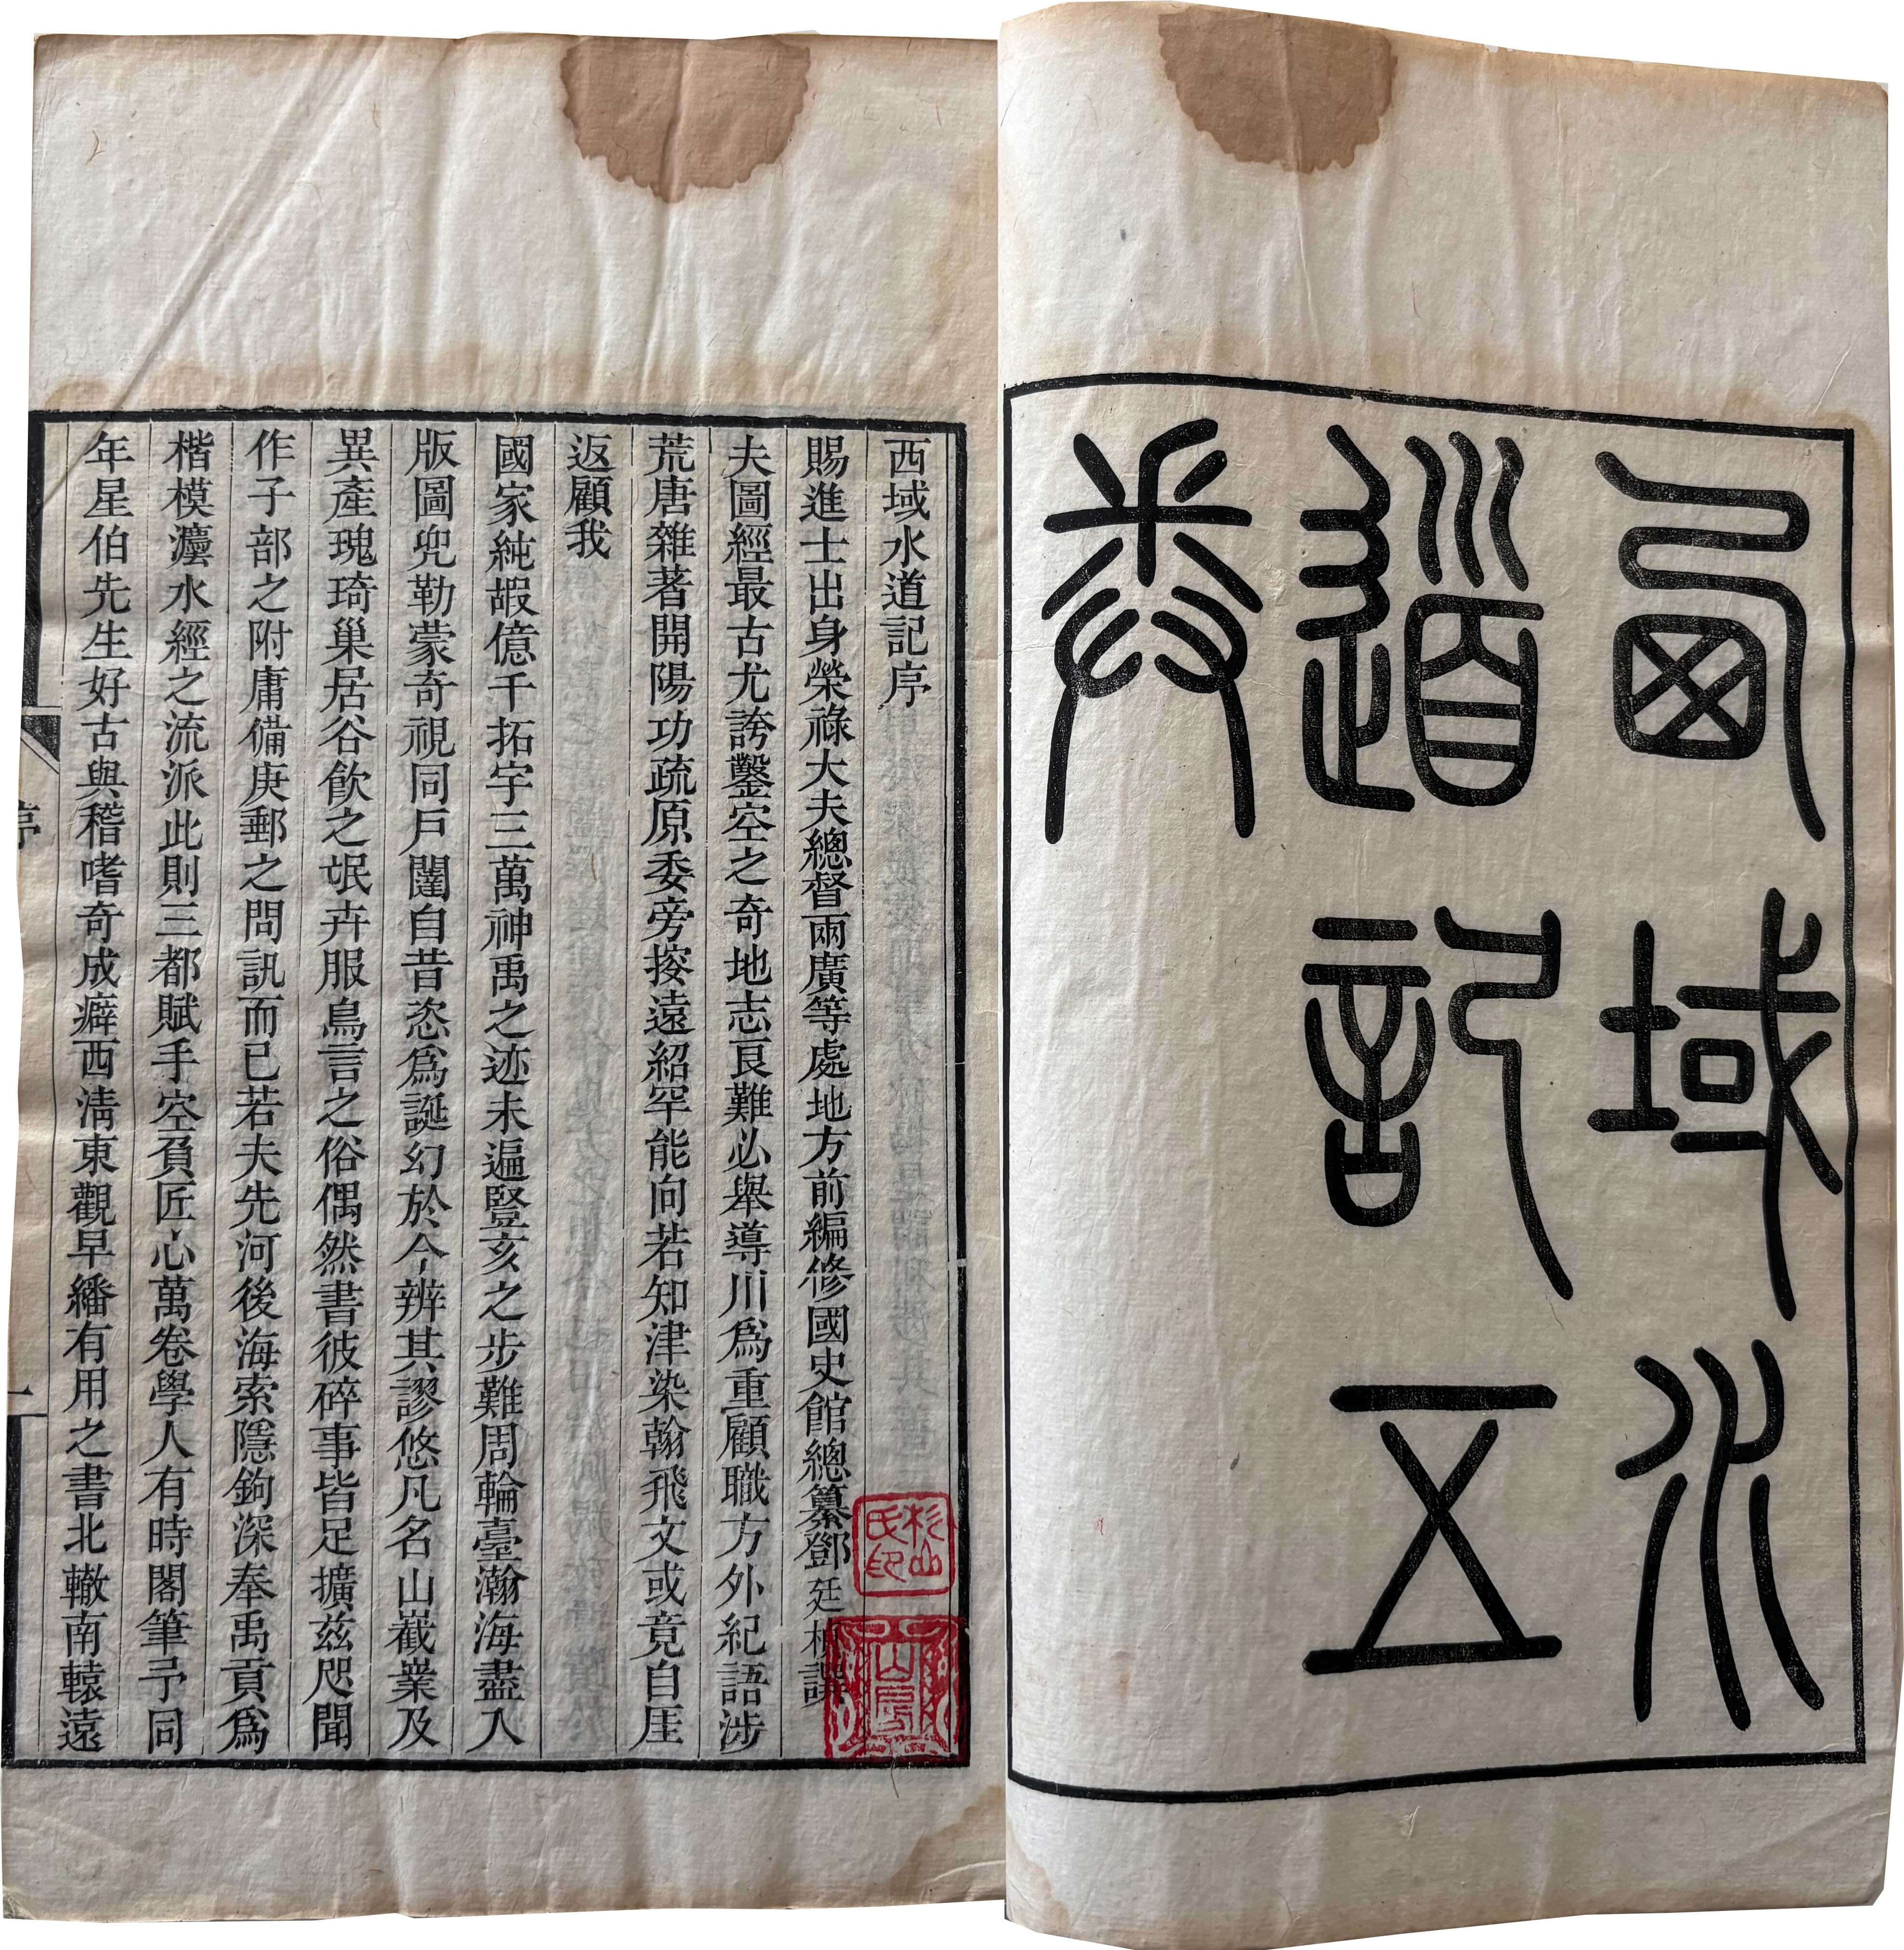 西域水
道記五
卷
西域水道記序
賜進士出身榮祿大夫總督兩廣等處地方前編修國史館總纂鄧廷楨譔
夫圖經最古尤誇鑿空之奇地志艮難必舉導川為重顧職方外紀語涉
荒唐雜著開陽功疏原委旁按遠紹罕能向若知津染翰飛文或竟自厓
返顧我
國家純嘏億千拓宇三萬神禹之迹未遍豎亥之步難周輪臺瀚海盡入
版圖兜勒蒙奇視同戶闥自昔恣為誕幻於今辨其謬悠凡名山嶻業及
異產瑰琦巢居谷飲之氓卉服鳥言之俗偶然書彼碎事皆足擴茲咫聞
作子部之附庸備庚郵之問訊而已若夫先河後海索隱鉤深奉禹貢為
楷模灋水經之流派此則三都賦手空負匠心萬卷學人有時閣筆予同
年星伯先生好古與稽嗜奇成癖西淸東觀早繙有用之書北轍南轅遠
序
一
杉山
氏印